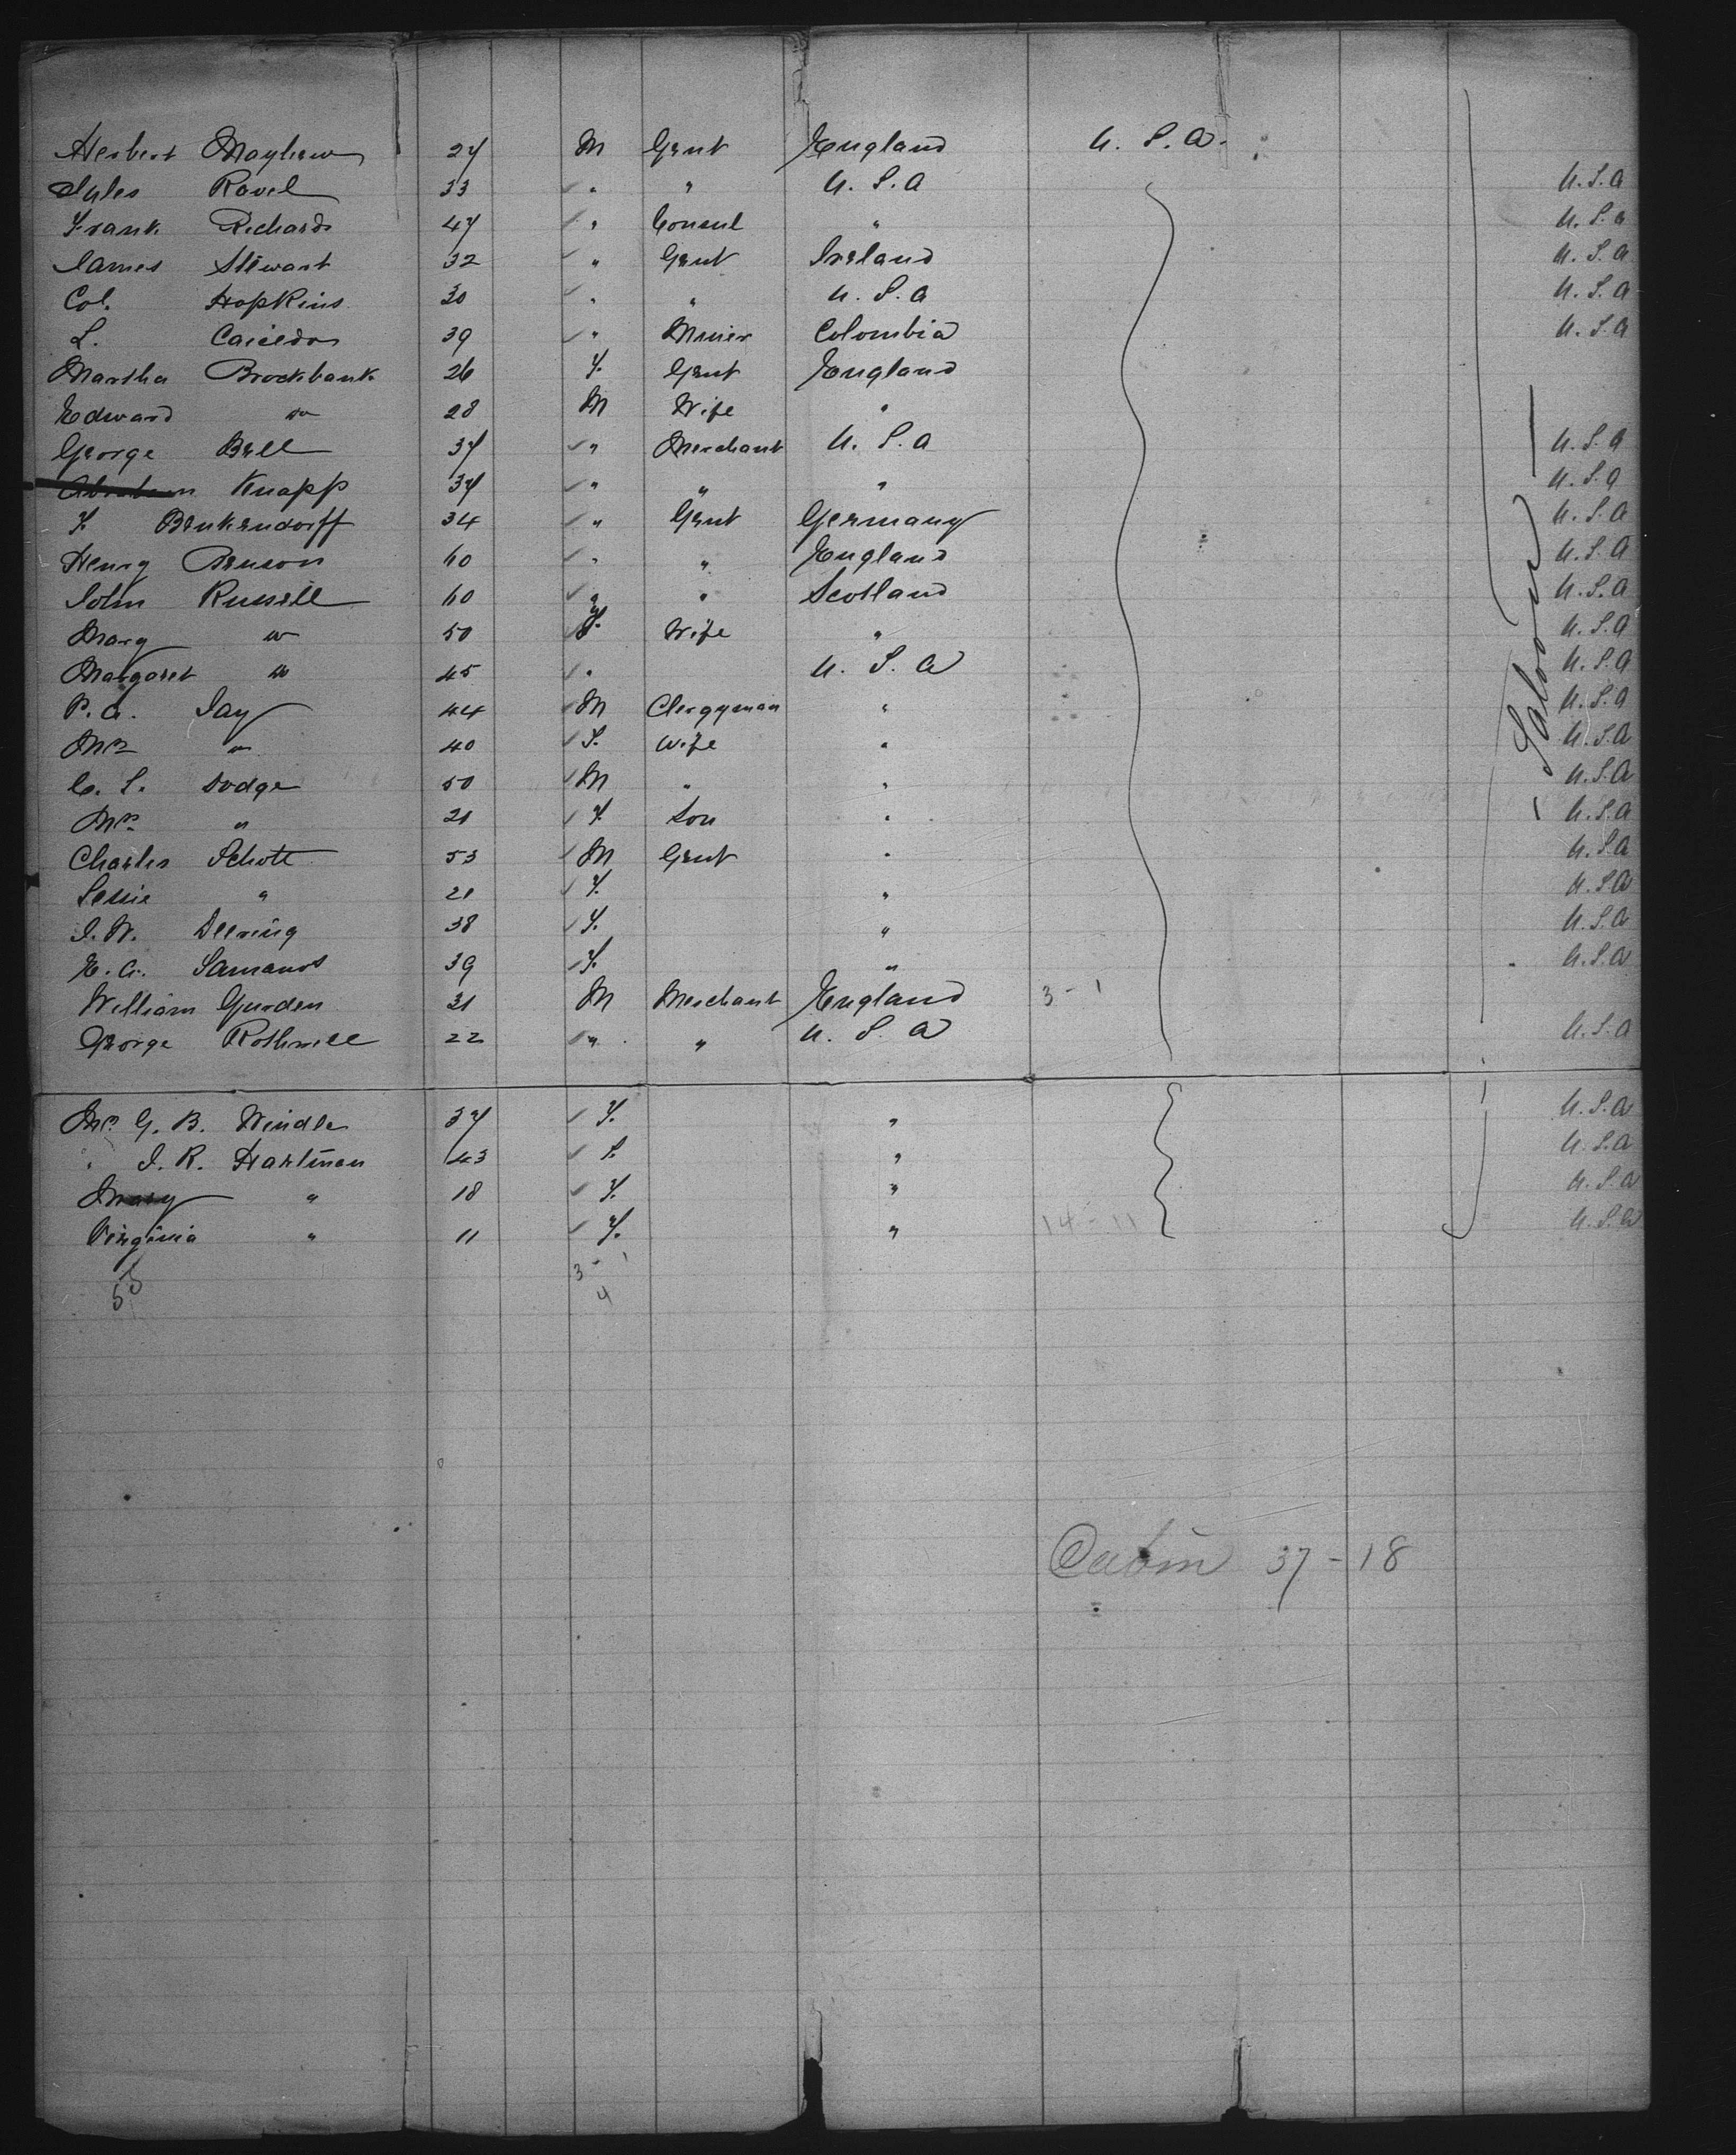 Herbert Mayhew 27 M Gent England U.S.A.
Jules Ravel 33 " " U.S.A U.S.A
Frank Richards 47 " Consul " U.S.A
James Stewart 32 " Gent Ireland U.S.A
Col. Hopkins 30 " " U.S.A U.S.A
L. Caicedo 39 " Miner Colombia U.S.A
Martha Brockbank 26 F. Gent England
Edward do 28 M Wife "
George Bell 37 " Merchant U.S.A U.S.A
Knapp 37 " " " U.S.A
F. Benkendorff 34 " Gent Germany U.S.A
Henry Benson 60 " " England U.S.A
John Russell 60 " " Scotland U.S.A
Mary do 50 F. Wife " U.S.A
Margaret do 45 " U.S.A U.S.A
P.A. Jay 44 M Clergyman " U.S.A
Mrs " 40 F. Wife " U.S.A
C.S. Dodge 50 M " " U.S.A
Mrs " 21 F. Son " U.S.A
Charles Schott 53 M Gent " U.S.A
Lessie " 21 F. " U.S.A
J.W. Deering 38 F. " U.S.A
E.A. 39 F. " U.S.A
William Gurden 31 M Merchant England 3-1
George Rothwell 22 " " U.S.A U.S.A
Mrs G.B. Windle 37 F. " U.S.A
" J.R. Hartman 43 F. " U.S.A
Mary " 18 F. " U.S.A
Virginia " 11 F. " 14-11 U.S.A
55
3-1
4
- Saloon -
Cabin 37-18